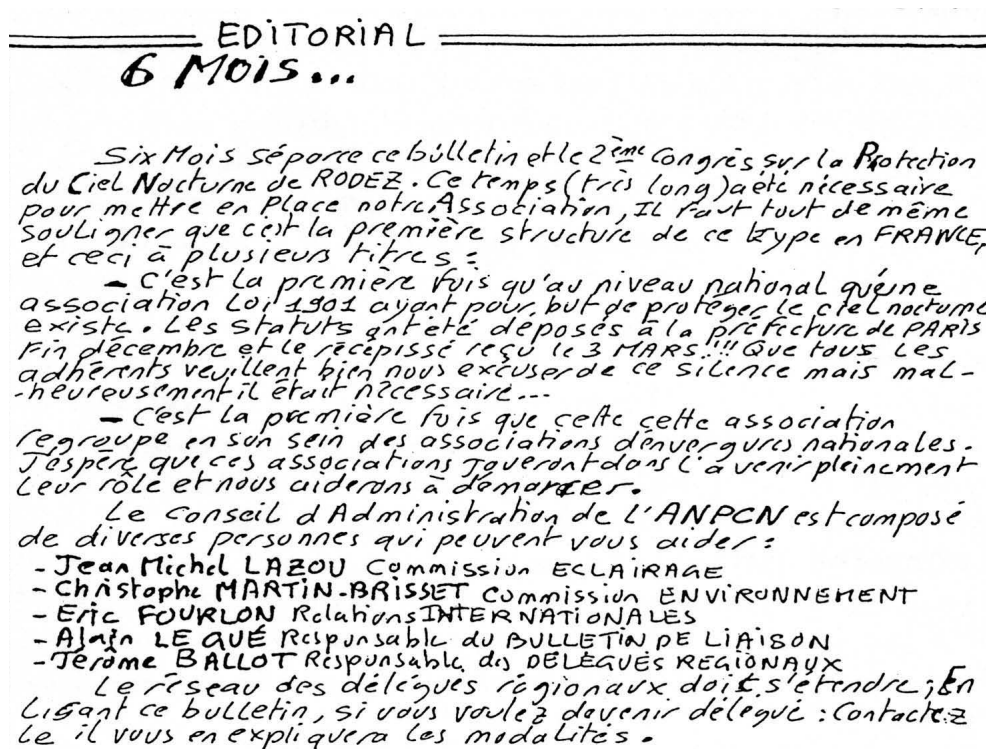 EDITORIAL
6 MOIS...
Six Mois séparce ce bulletin et le 2ème Congrès sur la Protection
du Ciel Nocturne de RODEZ. Ce temps (très long) a été nécessaire
pour mettre en Place notre Association, Il faut tout de même
souligner que c'est la première structure de ce type en FRANCE,
et ceci à plusieurs titres :
- C'est la première fois qu'au niveau national qu'une
association Loi 1901 ayant pour but de protéger le ciel nocturne
existe. Les statuts ont été déposés à la préfecture de PARIS
Fin décembre et le récépissé reçu le 3 MARS!!! Que tous les
adhérents veuillent bien nous excuser de ce silence mais mal-
-heureusement il était nécessaire...
- C'est la première fois que cette cette association
regroupe en son sein des associations d'envergures nationales.
J'espère que ces associations joueront dans l'avenir pleinement
leur rôle et nous aiderons à démarrer.
Le Conseil d'Administration de l'ANPCN est composé
de diverses personnes qui peuvent vous aider :
- Jean Michel LAZOU Commission ECLAIRAGE
- Christophe MARTIN-BRISSET Commission ENVIRONNEMENT
- Eric FOURLON Relations INTERNATIONALES
- Alain LE GUÉ Responsable du BULLETIN DE LIAISON
- Jérôme BALLOT Responsable des DELEGUES REGIONAUX
Le réseau des délégués régionaux doit s'étendre ; En
Lisant ce bulletin, si vous voulez devenir délégué : Contactez
le il vous en expliquera les modalités.